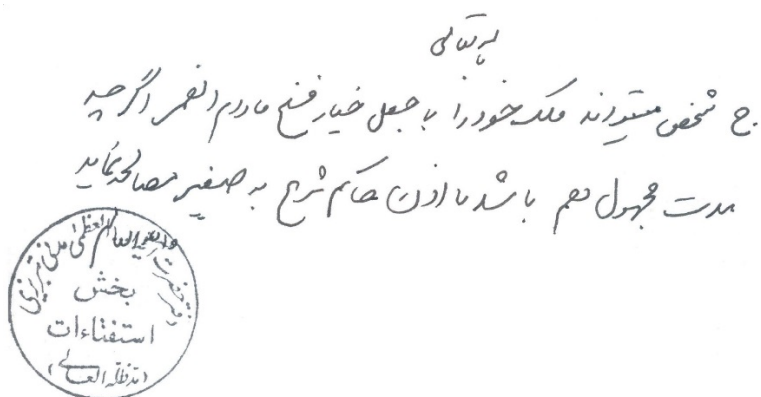 بسمه تعالی
ج شخص میتواند ملک خود را با جعل خیار فسخ مادام العمر اگرچه
مدت مجهول هم باشد با اذن حاکم شرع به صغیر مصالحه نماید
دفتر حضرت آیة الله العظمی مدنی تبریزی
بخش
استفتاءات
(مدظله العالی)